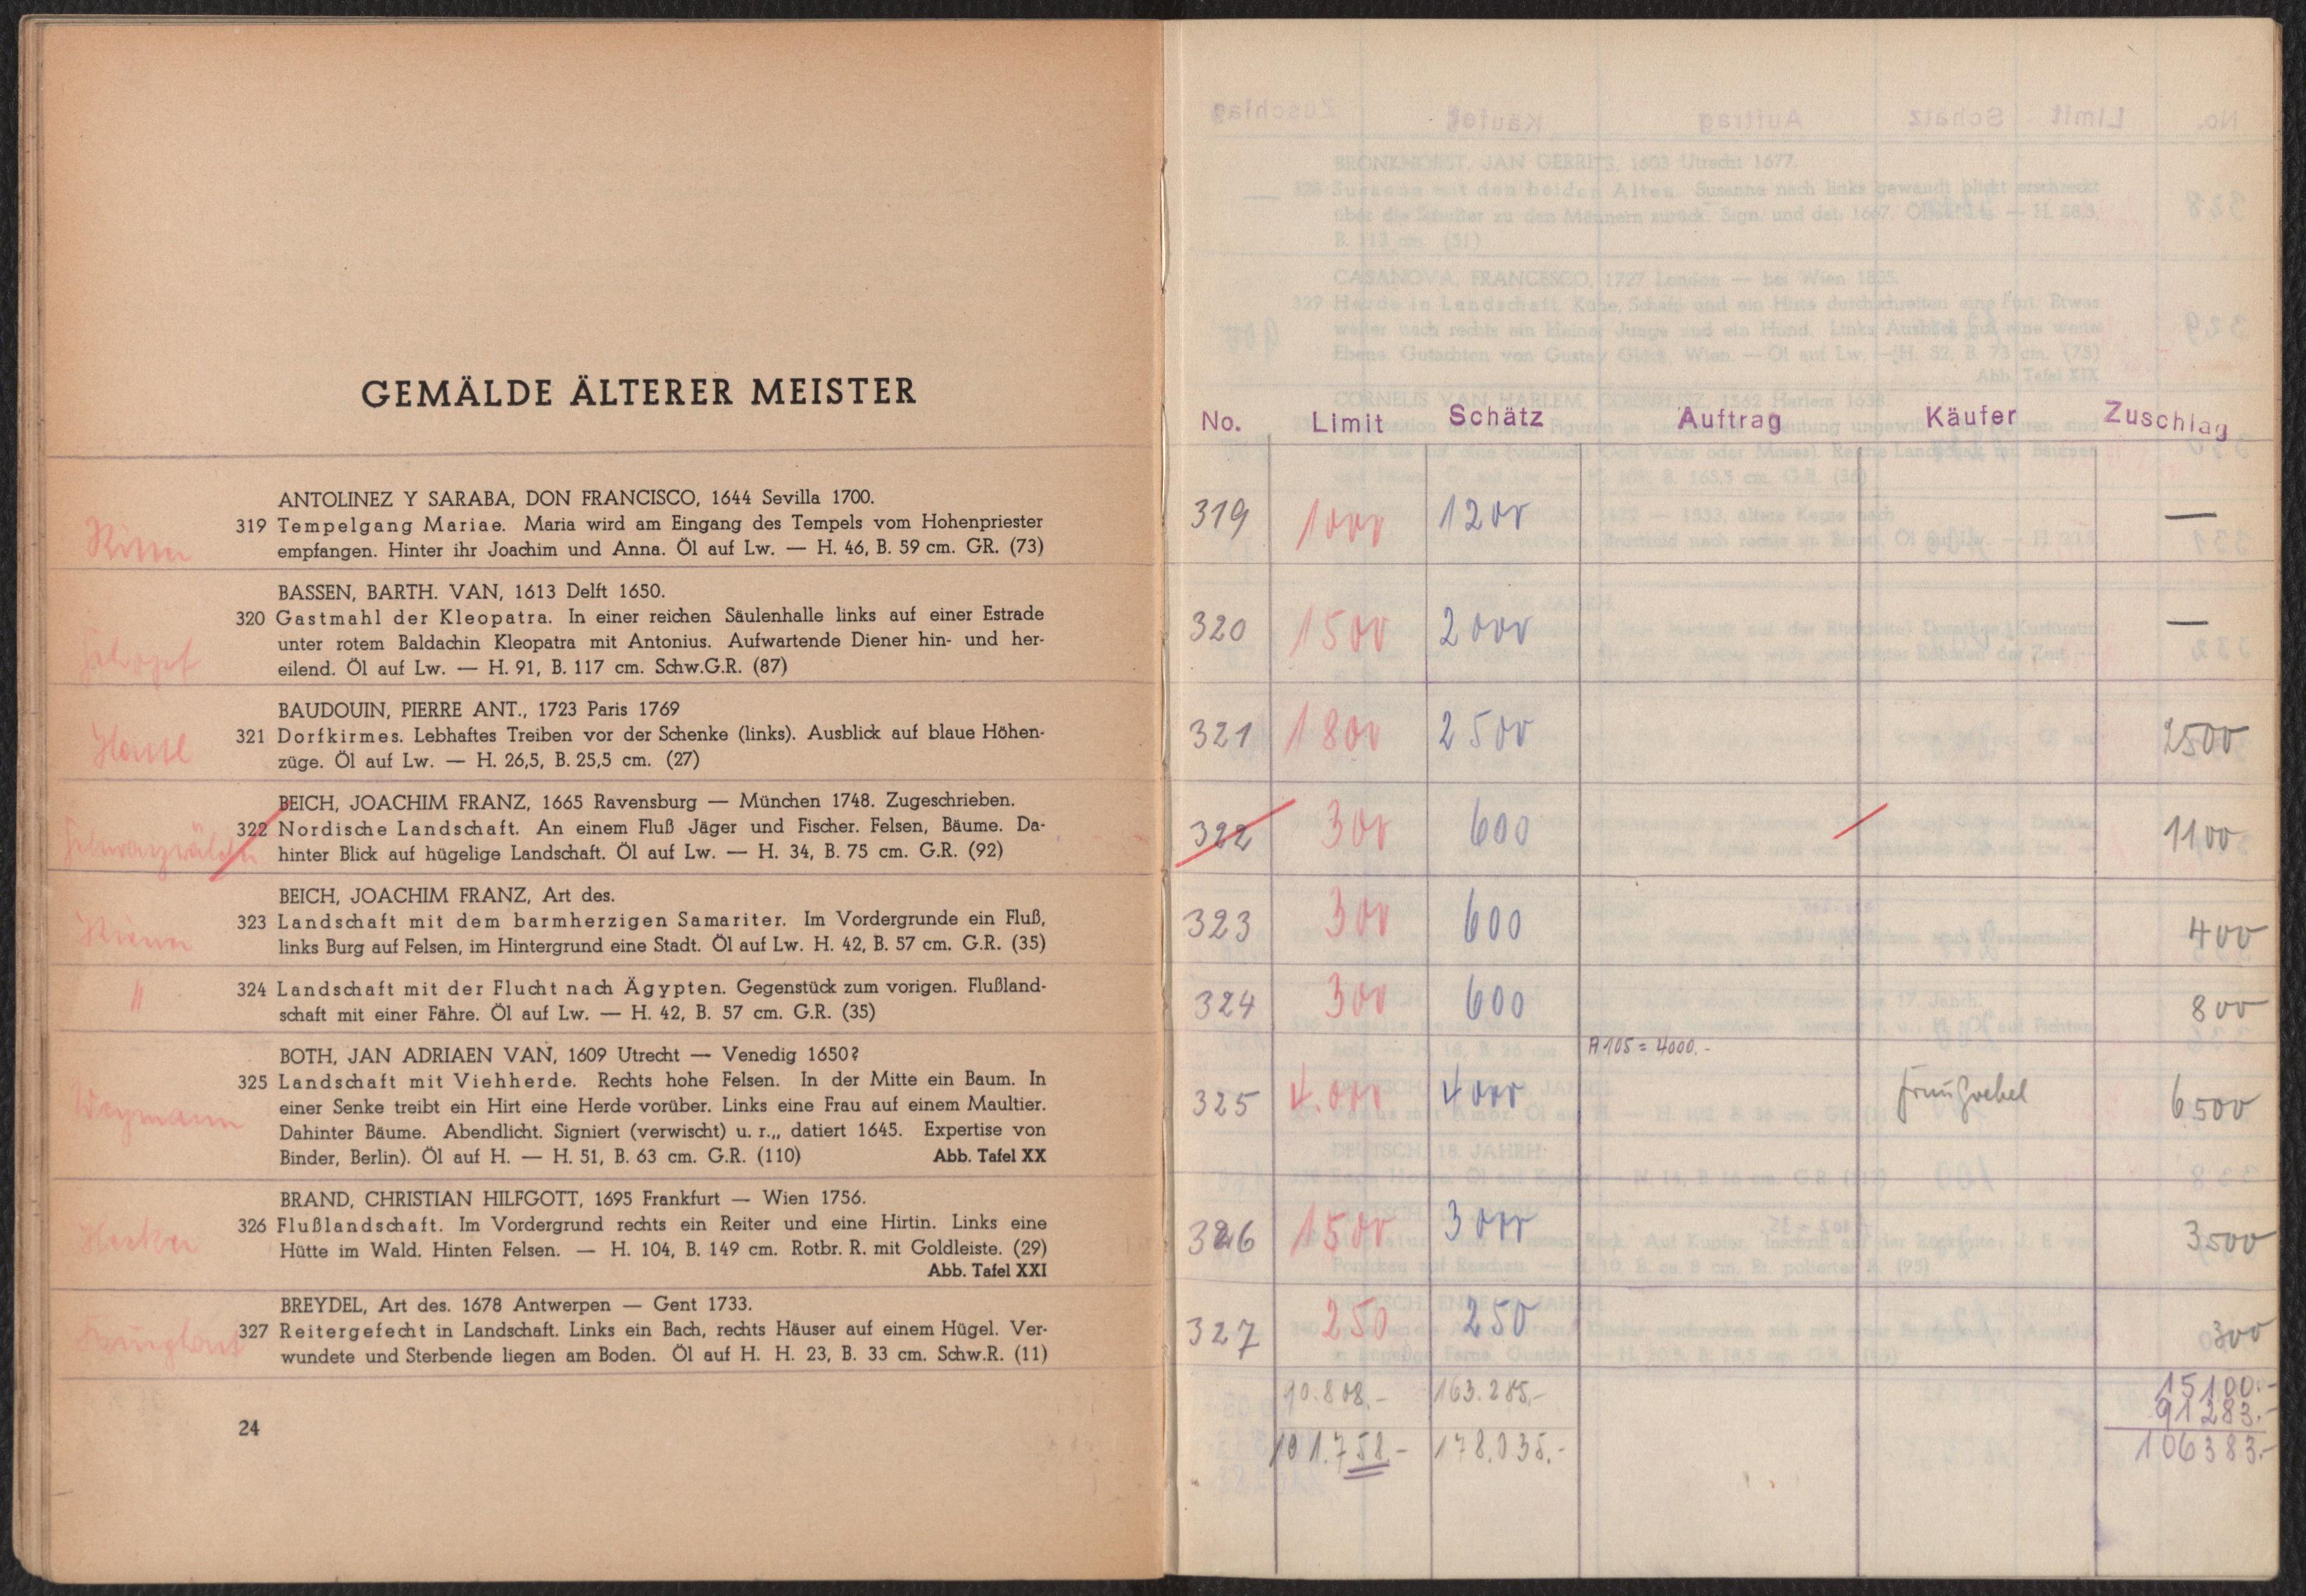 GEMÄLDE ÄLTERER MEISTER
ANTOLINEZ Y SARABA, DON FRANCISCO, 1644 Sevilla 1700.
319 Tempelgang Mariae. Maria wird am Eingang des Tempels vom Hohenpriester
empfangen. Hinter ihr Joachim und Anna. Öl auf Lw. — H. 46, B. 59 cm. GR. (73)
BASSEN, BARTH. VAN, 1613 Delft 1650.
320 Gastmahl der Kleopatra. In einer reichen Säulenhalle links auf einer Estrade
unter rotem Baldachin Kleopatra mit Antonius. Aufwartende Diener hin- und her-
eilend. Öl auf Lw. — H. 91, B. 117 cm. Schw.G.R. (87)
BAUDOUIN, PIERRE ANT., 1723 Paris 1769
321 Dorfkirmes. Lebhaftes Treiben vor der Schenke (links). Ausblick auf blaue Höhen-
züge. Öl auf Lw. — H. 26,5, B. 25,5 cm. (27)
BEICH, JOACHIM FRANZ, 1665 Ravensburg — München 1748. Zugeschrieben.
322 Nordische Landschaft. An einem Fluß Jäger und Fischer. Felsen, Bäume. Da-
hinter Blick auf hügelige Landschaft. Öl auf Lw. — H. 34, B. 75 cm. G.R. (92)
BEICH, JOACHIM FRANZ, Art des.
323 Landschaft mit dem barmherzigen Samariter. Im Vordergrunde ein Fluß,
links Burg auf Felsen, im Hintergrund eine Stadt. Öl auf Lw. H. 42, B. 57 cm. G.R. (35)
" 324 Landschaft mit der Flucht nach Ägypten. Gegenstück zum vorigen. Flußland-
schaft mit einer Fähre. Öl auf Lw. — H. 42, B. 57 cm. G.R. (35)
BOTH, JAN ADRIAEN VAN, 1609 Utrecht — Venedig 1650?
325 Landschaft mit Viehherde. Rechts hohe Felsen. In der Mitte ein Baum. In
Weymann einer Senke treibt ein Hirt eine Herde vorüber. Links eine Frau auf einem Maultier.
Dahinter Bäume. Abendlicht. Signiert (verwischt) u. r.,, datiert 1645. Expertise von
Binder, Berlin). Öl auf H. — H. 51, B. 63 cm. G.R. (110) Abb. Tafel XX
BRAND, CHRISTIAN HILFGOTT, 1695 Frankfurt — Wien 1756.
326 Flußlandschaft. Im Vordergrund rechts ein Reiter und eine Hirtin. Links eine
Hütte im Wald. Hinten Felsen. — H. 104, B. 149 cm. Rotbr. R. mit Goldleiste. (29)
Abb. Tafel XXI
BREYDEL, Art des. 1678 Antwerpen — Gent 1733.
327 Reitergefecht in Landschaft. Links ein Bach, rechts Häuser auf einem Hügel. Ver-
wundete und Sterbende liegen am Boden. Öl auf H. H. 23, B. 33 cm. Schw.R. (11)
24
No. Limit Schätz Auftrag Käufer Zuschlag
319 1000 1200 —
320 1500 2000 —
321 1800 2500 2500
322 300 600 1100
323 300 600 400
324 300 600 800
A 105 = 4000.-
325 4.000 4000 6500
326 1500 3000 3500
327 250 250 300
163.285,- 15100.-
91283.-
101.758.- 178.035.- 106383.-